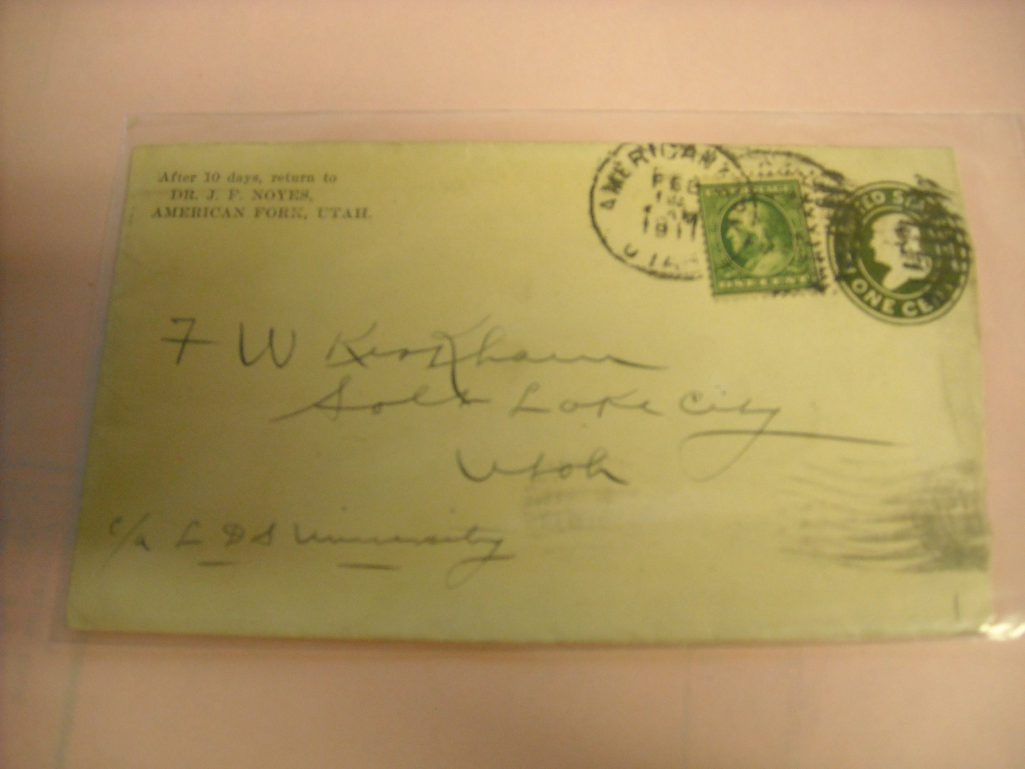 After 10 days, return to
DR. J. F. NOYES,
AMERICAN FORK, UTAH.
AMERICAN
FEB
1911
UTAH
ONE CENT
UNITED STATES
ONE CENT
F W Kirkham
Salt Lake City
Utah
c/o L D S University